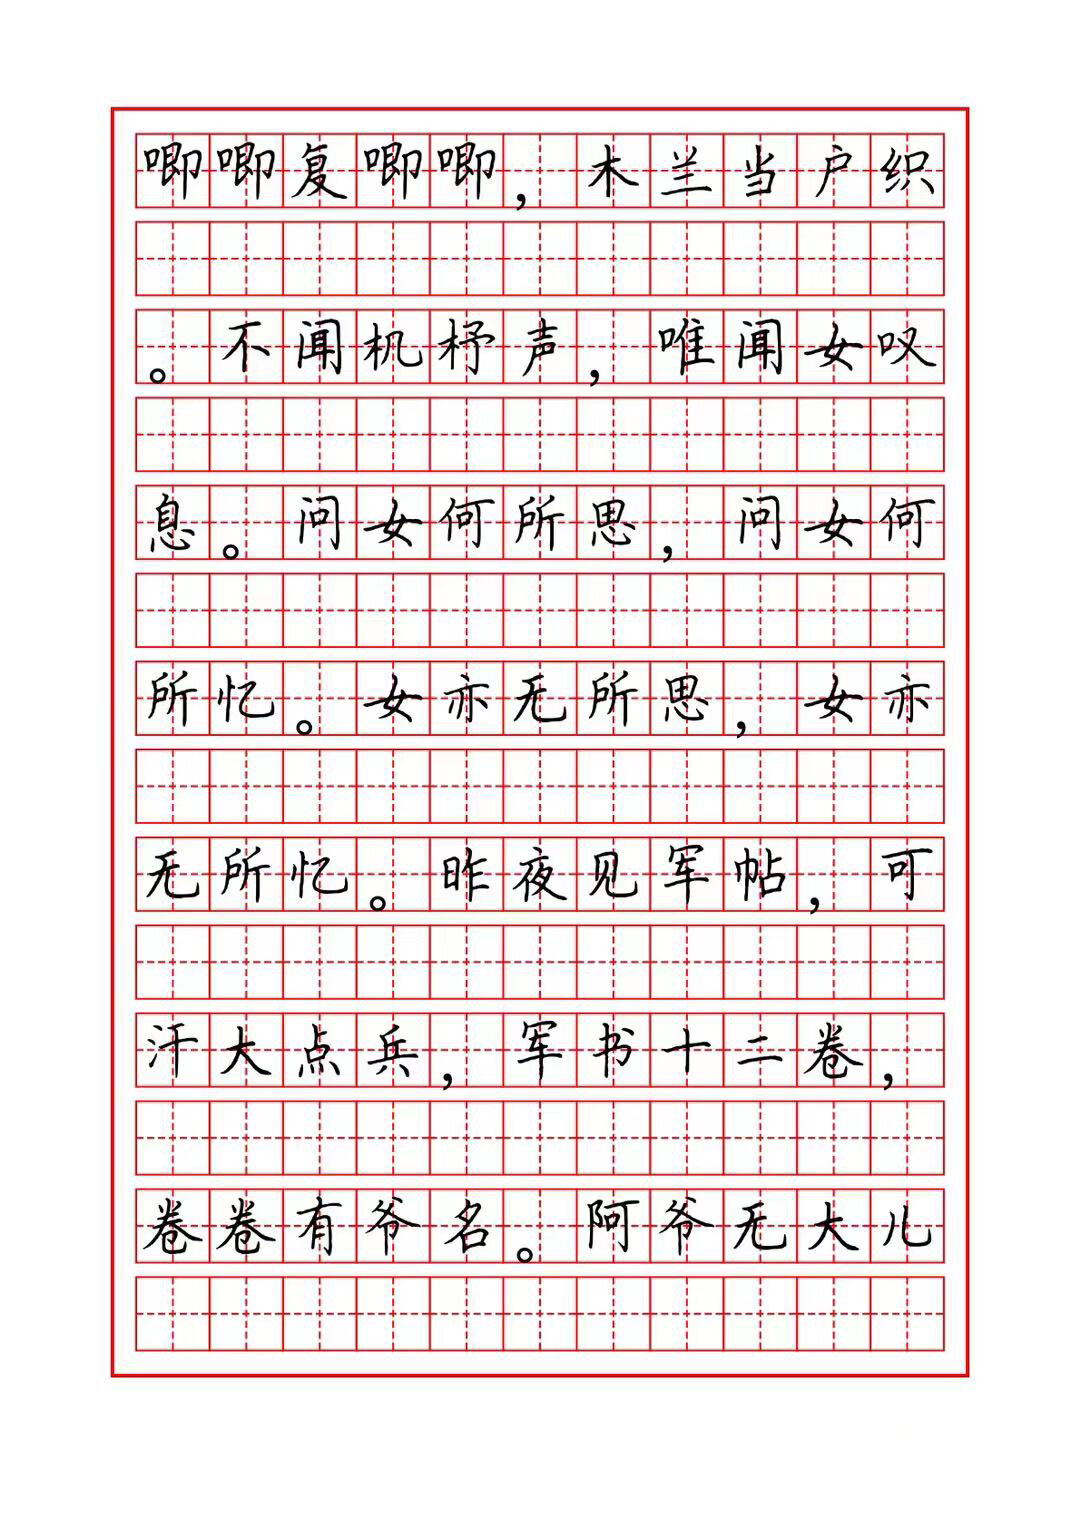 唧唧复唧唧，木兰当户织
。不闻机杼声，唯闻女叹
息。问女何所思，问女何
所忆。女亦无所思，女亦
无所忆。昨夜见军帖，可
汗大点兵，军书十二卷，
卷卷有爷名。阿爷无大儿